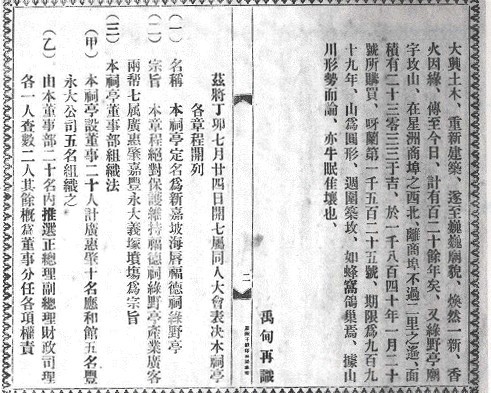 大興土木、重新建築、遂至巍巍廟貌、煥然一新、香
火因緣、傳至今日、計有百二十餘年矣、又綠野亭廟
字攻山、在星洲商埠之西北、離商埠不過二里之遙、面
積有二十三零三三于吉、於一千八百四十年一月二十
號所購買、呀蘭第一千五百二十五號、期限爲九百九
十九年、山爲圓形、週圍築攻、如蜂窩鴿巢焉、據山
川形勢而論、亦牛眠隹壤也、
禹甸再識
二
茲將丁卯七月廿四日開七屬同人大會表决本祠亭
各章程開列
(一)名稱 本祠亭定名爲新嘉坡海唇福德祠綠野亭
(二)宗旨 本章程絕對保護維持福德祠綠野亭產業廣客
兩帮七屬廣惠肇嘉豐永大義塚墳塲爲宗旨
(三)本祠亭董事部組織法
(甲)本祠亭設董事二十人計廣惠肇十名應和館五名豐
永大公司五名組織之
(乙)由本董事部二十名內推選正總理副總理財政司理
各一人查數二人其餘概爲董事分任各項權責